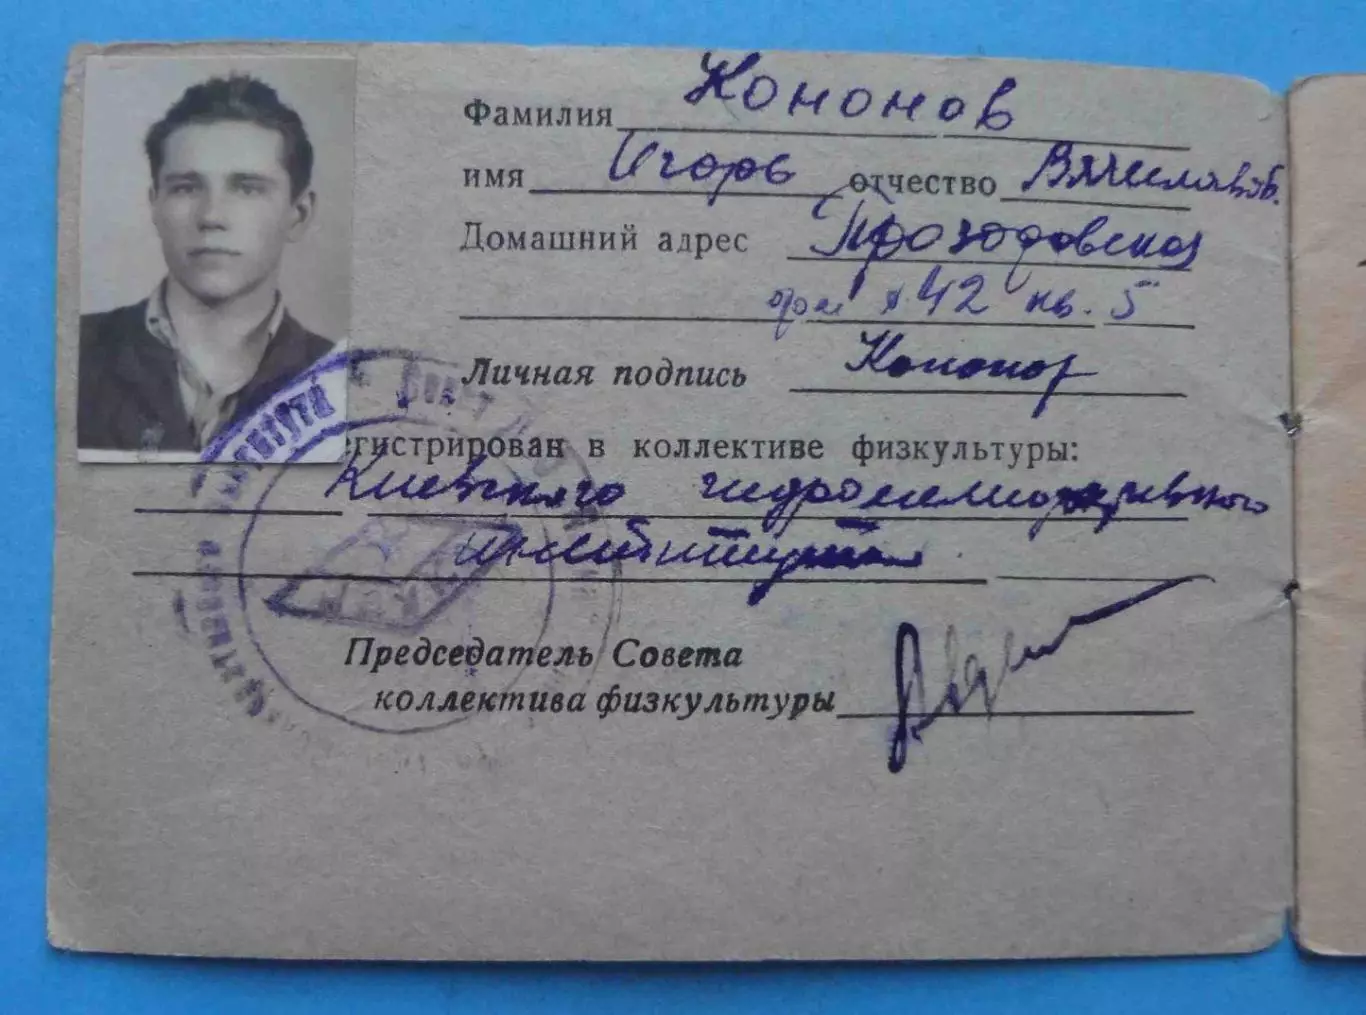 Фамилия Кононов
имя Игорь отчество Вячеславов.
Домашний адрес
дом № 42 кв. 5
Личная подпись Кононов
егистрирован в коллективе физкультуры:
Киевского гидромелиоративного
института
Председатель Совета
коллектива физкультуры